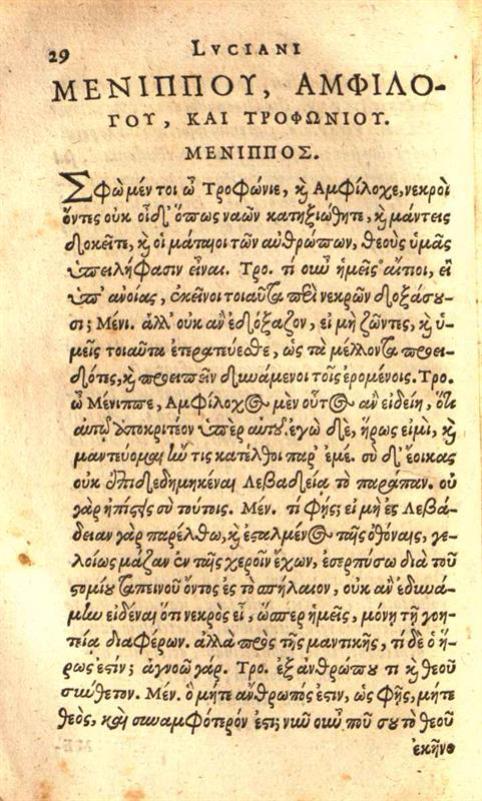 29 LVCIANI
ΜΕΝΙΠΠΟΥ, ΑΜΦΙΛΟ-
ΓΟΥ, ΚΑΙ ΤΡΟΦΩΝΙΟΥ.
ΜΕΝΙΠΠΟΣ.
Σφὼ μέν τοι ὦ Τροφώνιε, καὶ Αμφίλοχε, νεκροὶ
ὄντες οὐκ οἶδ' ὅπως ναῶν κατηξιώθητε, καὶ μάντεις
δοκεῖτε, καὶ οἱ μάταιοι τῶν ἀνθρώπων, θεοὺς ὑμᾶς
ὑπειλήφασιν εἶναι. Τρο. τί οὖν ἡμεῖς αἴτιοι, εἰ
ὑπ' ἀνοίας, ἐκεῖνοι τοιαῦτα περὶ νεκρῶν δοξάσου-
σι; Μένι. ἀλλ' οὐκ ἂν ἐδόξαζον, εἰ μὴ ζῶντες, καὶ ὑ-
μεῖς τοιαῦτα ἐτερατεύεσθε, ὡς τὰ μέλλοντα προει-
δότες, καὶ προειπεῖν δυνάμενοι τοῖς ἐρομένοις. Τρο.
ὦ Μένιππε, Αμφίλοχος μὲν οὗτος ἂν εἰδείη, ὅτι
αὐτῷ ἀποκριτέον ὑπὲρ αὑτοῦ. ἐγὼ δὲ, ἥρως εἰμὶ, καὶ
μαντεύομαι ἤν τις κατέλθοι παρ' ἐμέ. σὺ δ' ἔοικας
οὐκ ἐπιδεδημηκέναι Λεβαδείᾳ τὸ παράπαν. οὐ
γὰρ ἠπίστεις σὺ τούτοις. Μέν. τί φής; εἰ μὴ ἐς Λεβά-
δειαν γὰρ παρέλθω, καὶ ἐσταλμένος ταῖς ὀθόναις, γε-
λοίως μάζαν ἐν ταῖς χεροῖν ἔχων, ἐσερπύσω διὰ τοῦ
στομίου ταπεινοῦ ὄντος ἐς τὸ σπήλαιον, οὐκ ἂν ἐδυνά-
μην εἰδέναι ὅτι νεκρὸς εἶ, ὥσπερ ἡμεῖς, μόνῃ τῇ γοη-
τείᾳ διαφέρων. ἀλλὰ πρὸς τῆς μαντικῆς, τί δὲ ὁ ἥ-
ρως ἐστίν; ἀγνοῶ γάρ. Τρο. ἐξ ἀνθρώπου τι καὶ θεοῦ
σύνθετον. Μέν. ὃ μήτε ἄνθρωπός ἐστιν, ὡς φῂς, μήτε
θεὸς, καὶ συναμφότερόν ἐστι; νῦν οὖν ποῦ σου τὸ θεοῦ
ἐκεῖνο